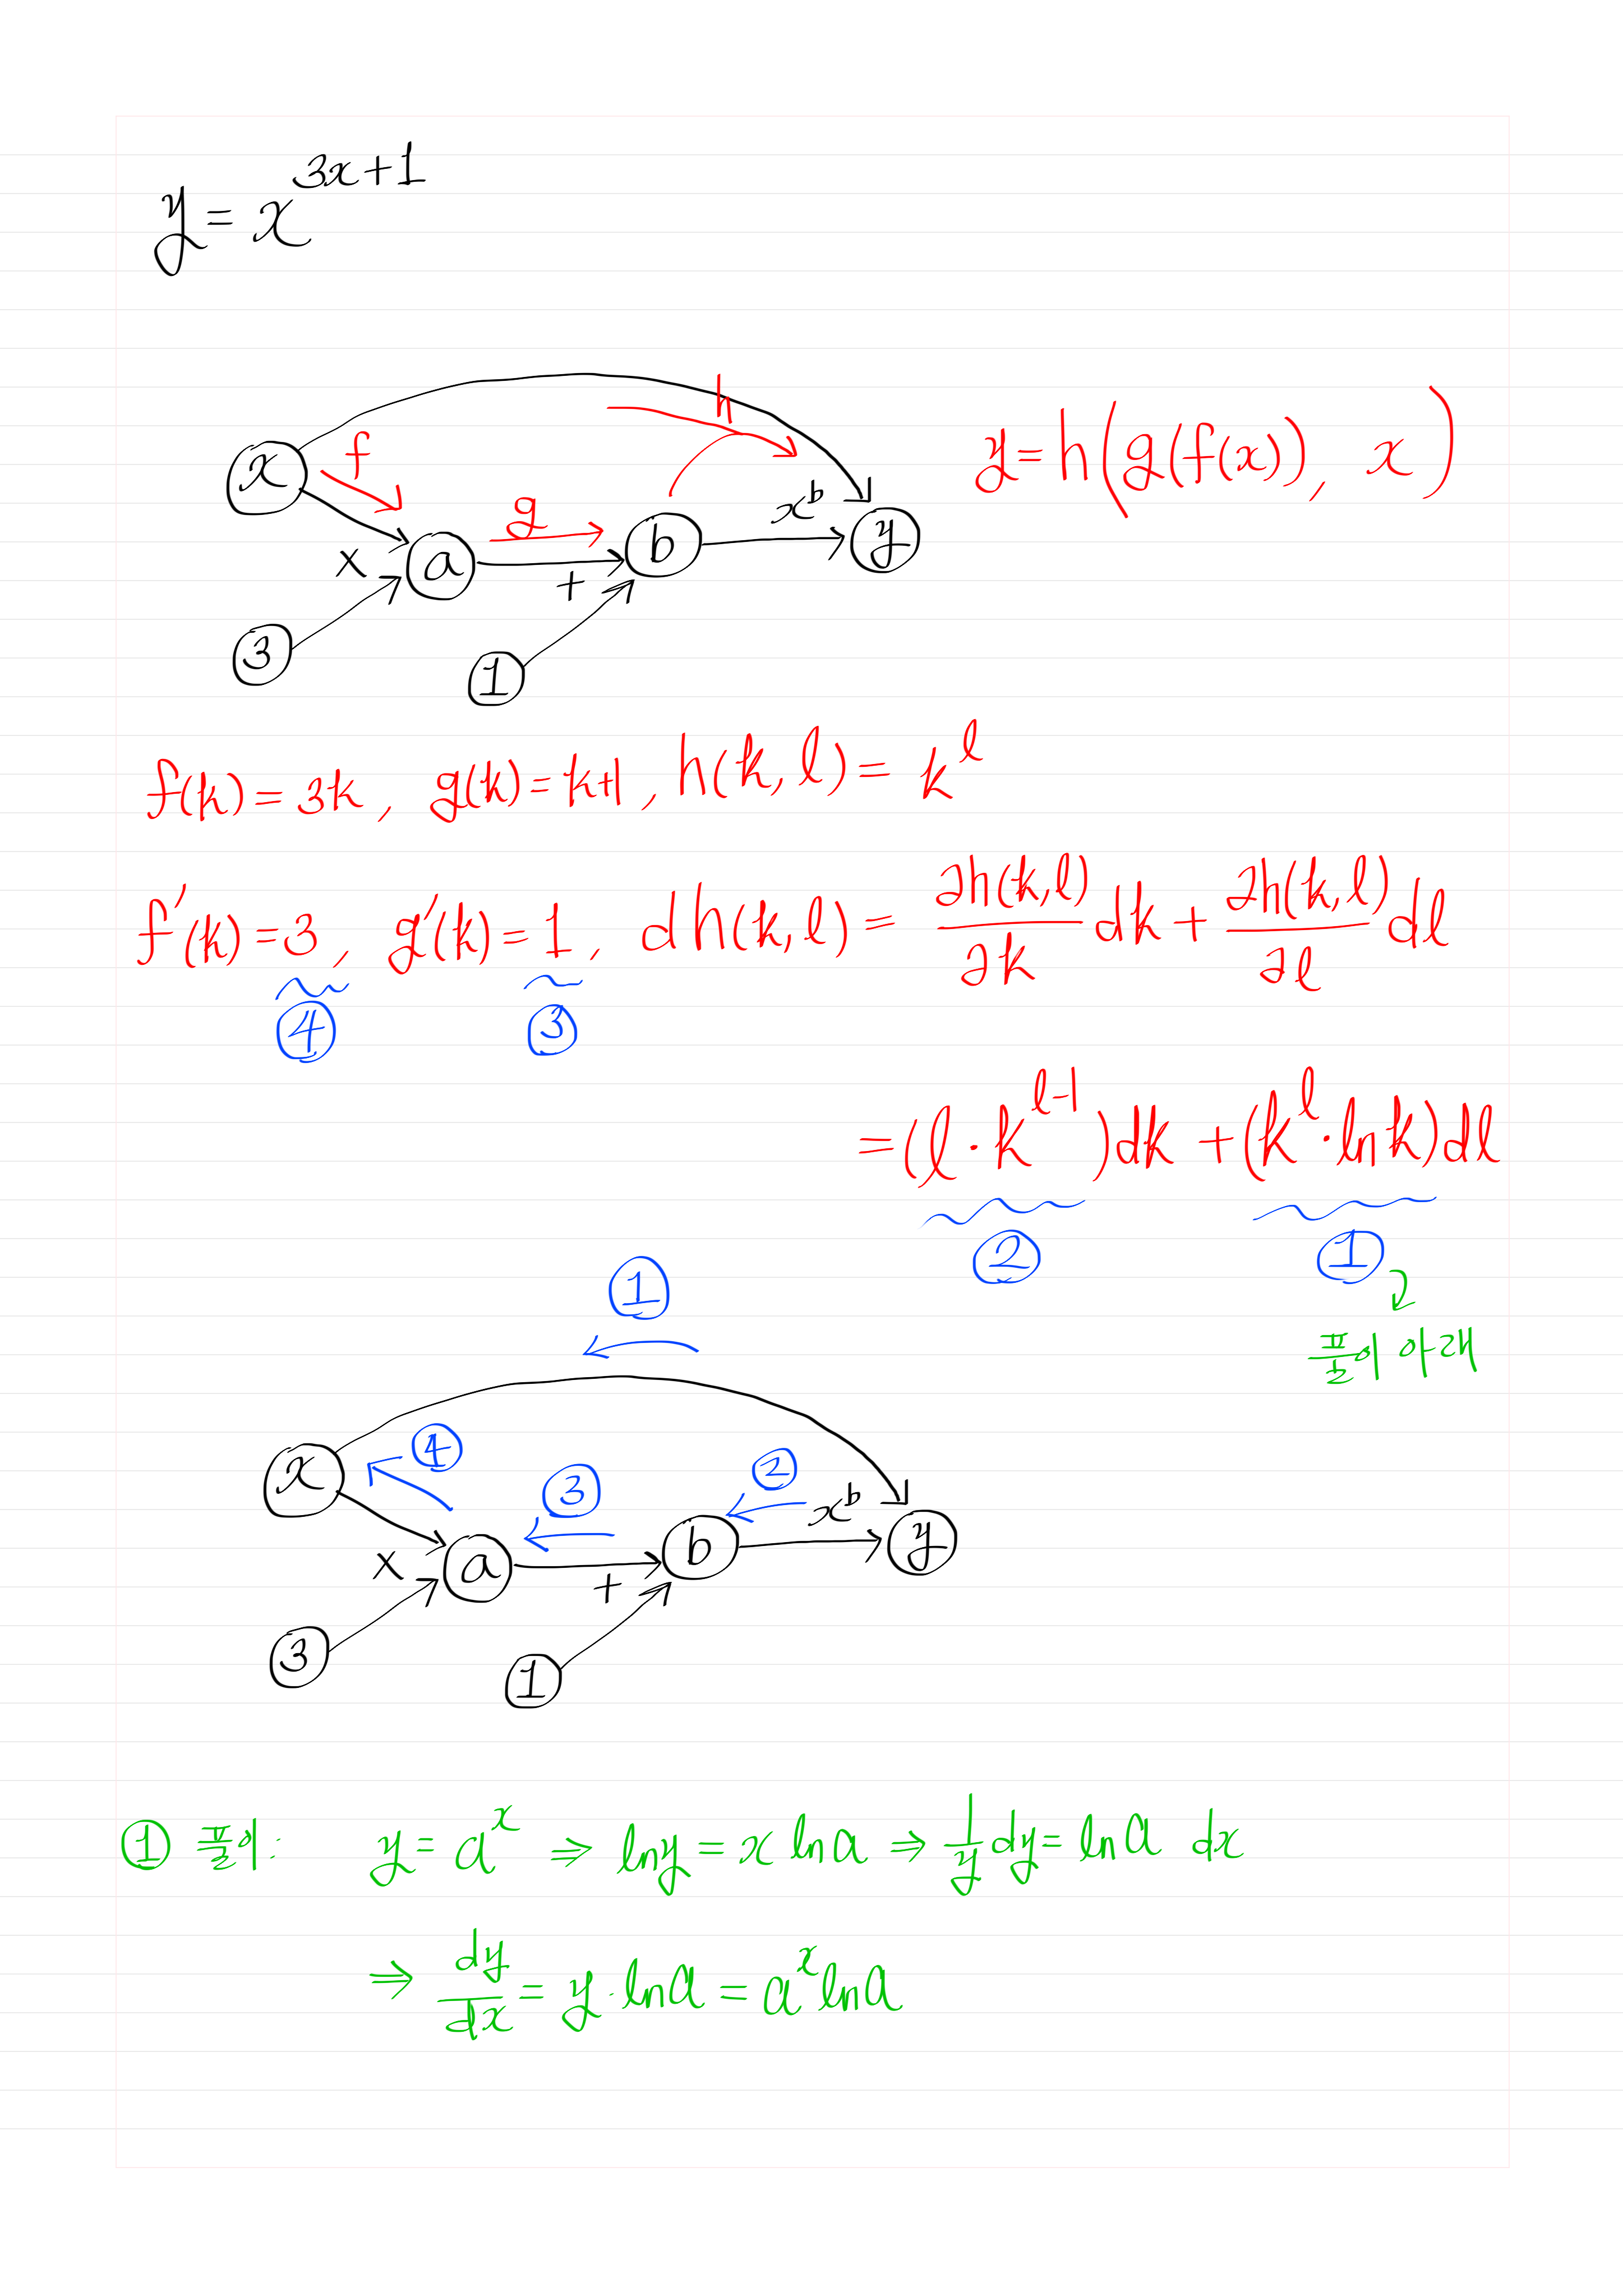 y = x^{3x+1}
h
x f g b x^b y y = h(g(f(x)), x)
× a +
3 1
f(k) = 3k, g(k) = k+1, h(k, l) = k^l
f'(k) = 3, g'(k) = 1, dh(k, l) = ∂h(k,l)/∂k dk + ∂h(k,l)/∂l dl
④ ③
= (l · k^{l-1})dk + (k^l · ln k)dl
② ①
풀이 아래
①
x ④ ③ ② x^b
× a + b y
3 1
① 풀이: y = a^x ⇒ ln y = x ln a ⇒ 1/y dy = ln a dx
⇒ dy/dx = y · ln a = a^x ln a